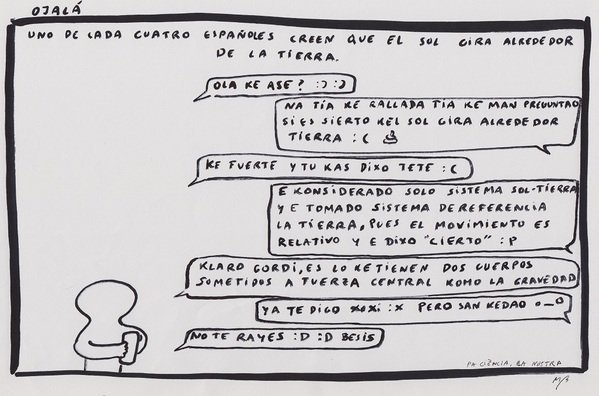 OJALÁ
UNO DE CADA CUATRO ESPAÑOLES CREEN QUE EL SOL GIRA ALREDEDOR
DE LA TIERRA.
OLA KE ASE? :):)
NA TÍA KE RALLADA TÍA KE MAN PREGUNTAO
SI ES SIERTO KEL SOL GIRA ALREDEDOR
TIERRA :(
KE FUERTE Y TU KAS DIXO TETE :(
E KONSIDERADO SOLO SISTEMA SOL-TIERRA
Y E TOMADO SISTEMA DE REFERENCIA
LA TIERRA, PUES EL MOVIMIENTO ES
RELATIVO Y E DIXO "CIERTO" :P
KLARO GORDI, ES LO KE TIENEN DOS CUERPOS
SOMETIDOS A FUERZA CENTRAL KOMO LA GRAVEDAD
YA TE DIGO XOXI :X PERO SAN KEDAO O_O
NO TE RAYES :D :D BESIS
PA CIÈNCIA, LA NOSTRA
M/A